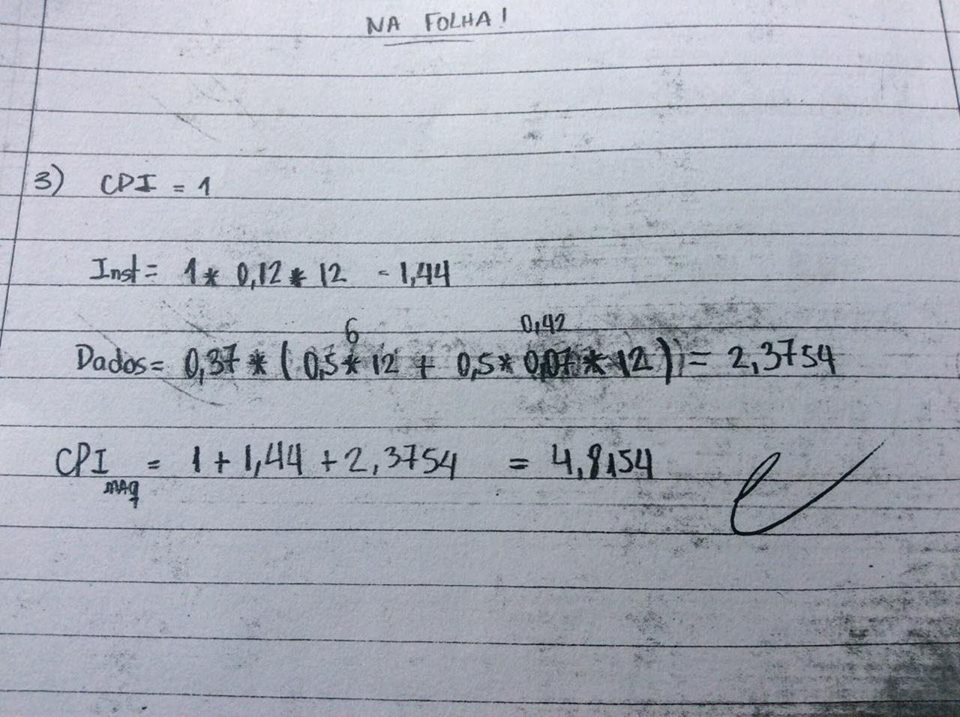 NA FOLHA!
3) CPI = 1
Inst = 1 * 0,12 * 12 - 1,44
6 0,42
Dados = 0,37 * ( 0,5 * 12 + 0,5 * 0,07 * 12 ) = 2,3754
CPI MAQ = 1 + 1,44 + 2,3754 = 4,8154